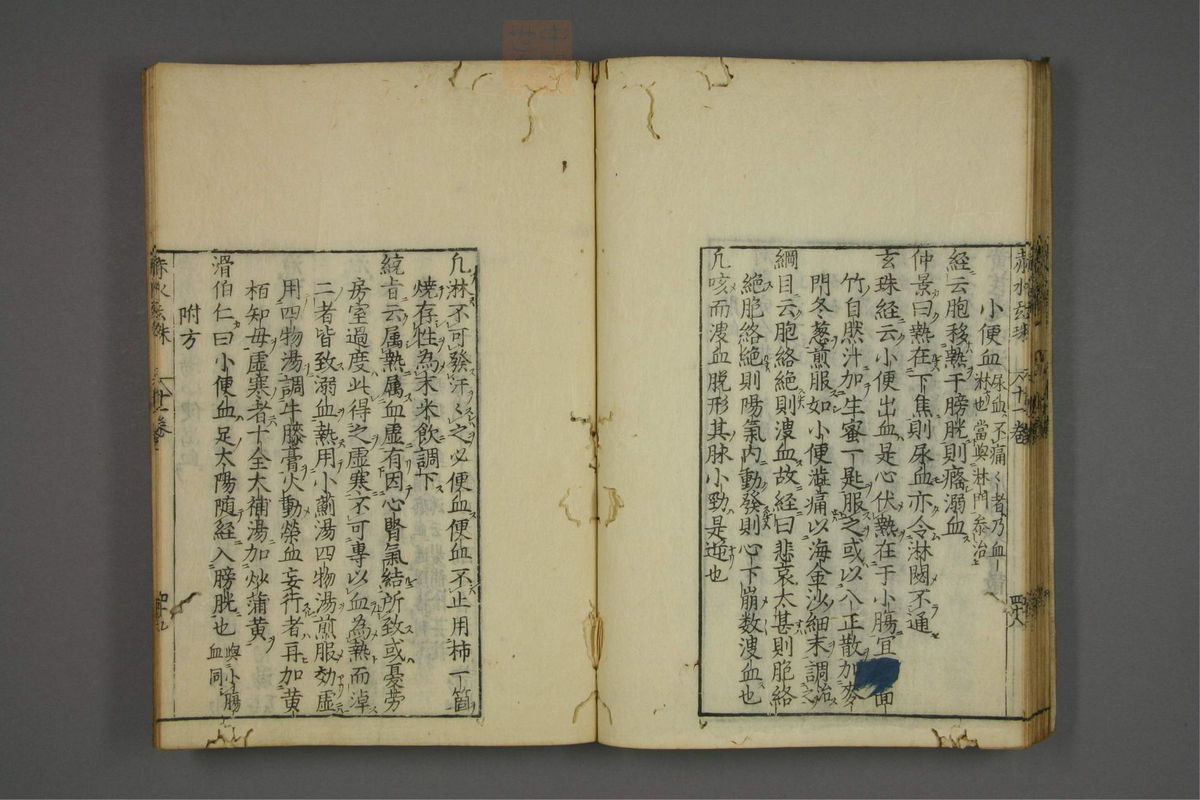 赤水玄珠 十一卷
小便血 尿血不痛痛者乃血淋也當與淋門參治
經云胞移熱于膀胱則癃溺血
仲景曰熱在下焦則尿血亦令淋閟不通
玄珠經云小便出血是心伏熱在于小腸宜 面
竹自然汁加生蜜一匙服之或以八正散加麥
門冬葱煎服如小便澁痛以海金沙細末調治之
綱目云胞絡絶則溲血故經曰悲哀太甚則胞絡
絶胞絡絶則陽氣内動發則心下崩数溲血也
凡咳而溲血脱形其脉小勁是逆也
凡淋不可發汗〻之必便血便血不止用柿一箇
燒存性為末米飲調下
統旨云属熱属血虚有因心腎氣結所致或憂劳
房室過度此得之虚寒不可專以血為熱而淖
二者皆致溺血熱用小薊湯四物湯煎服効虚
用四物湯調牛膝膏火動榮血妄行者再加黄
栢知母虚寒者十全大補湯加炒蒲黄
滑伯仁曰小便血足太陽随經入膀胱也 與小腸血同
附方
赤水玄珠 十一卷